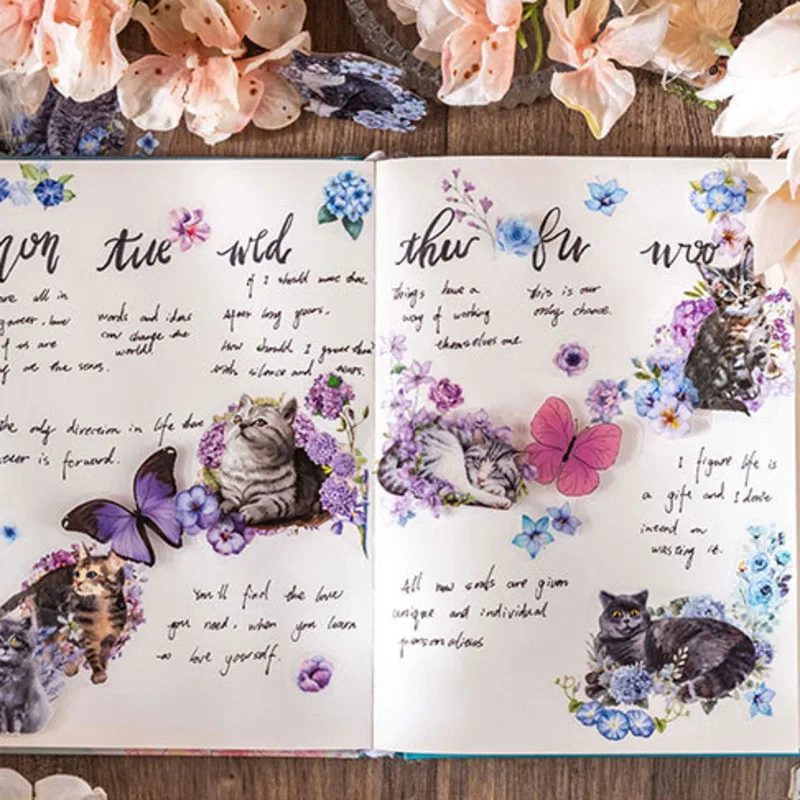 mon tue wed
are all in
career, love
f us are
of as the seas.
words and ideas
can change the
world!
if I should meet thee.
After long years,
How should I greet thee
with silence and tears.
the only direction in life that
ever is forward.
You'll find the love
you need, when you learn
to love yourself.
thu fri
things have a
way of working
themselves out
This is our
only chance.
I figure life is
a gift and I don't
intend on
wasting it.
All new souls are given
unique and individual
personalities